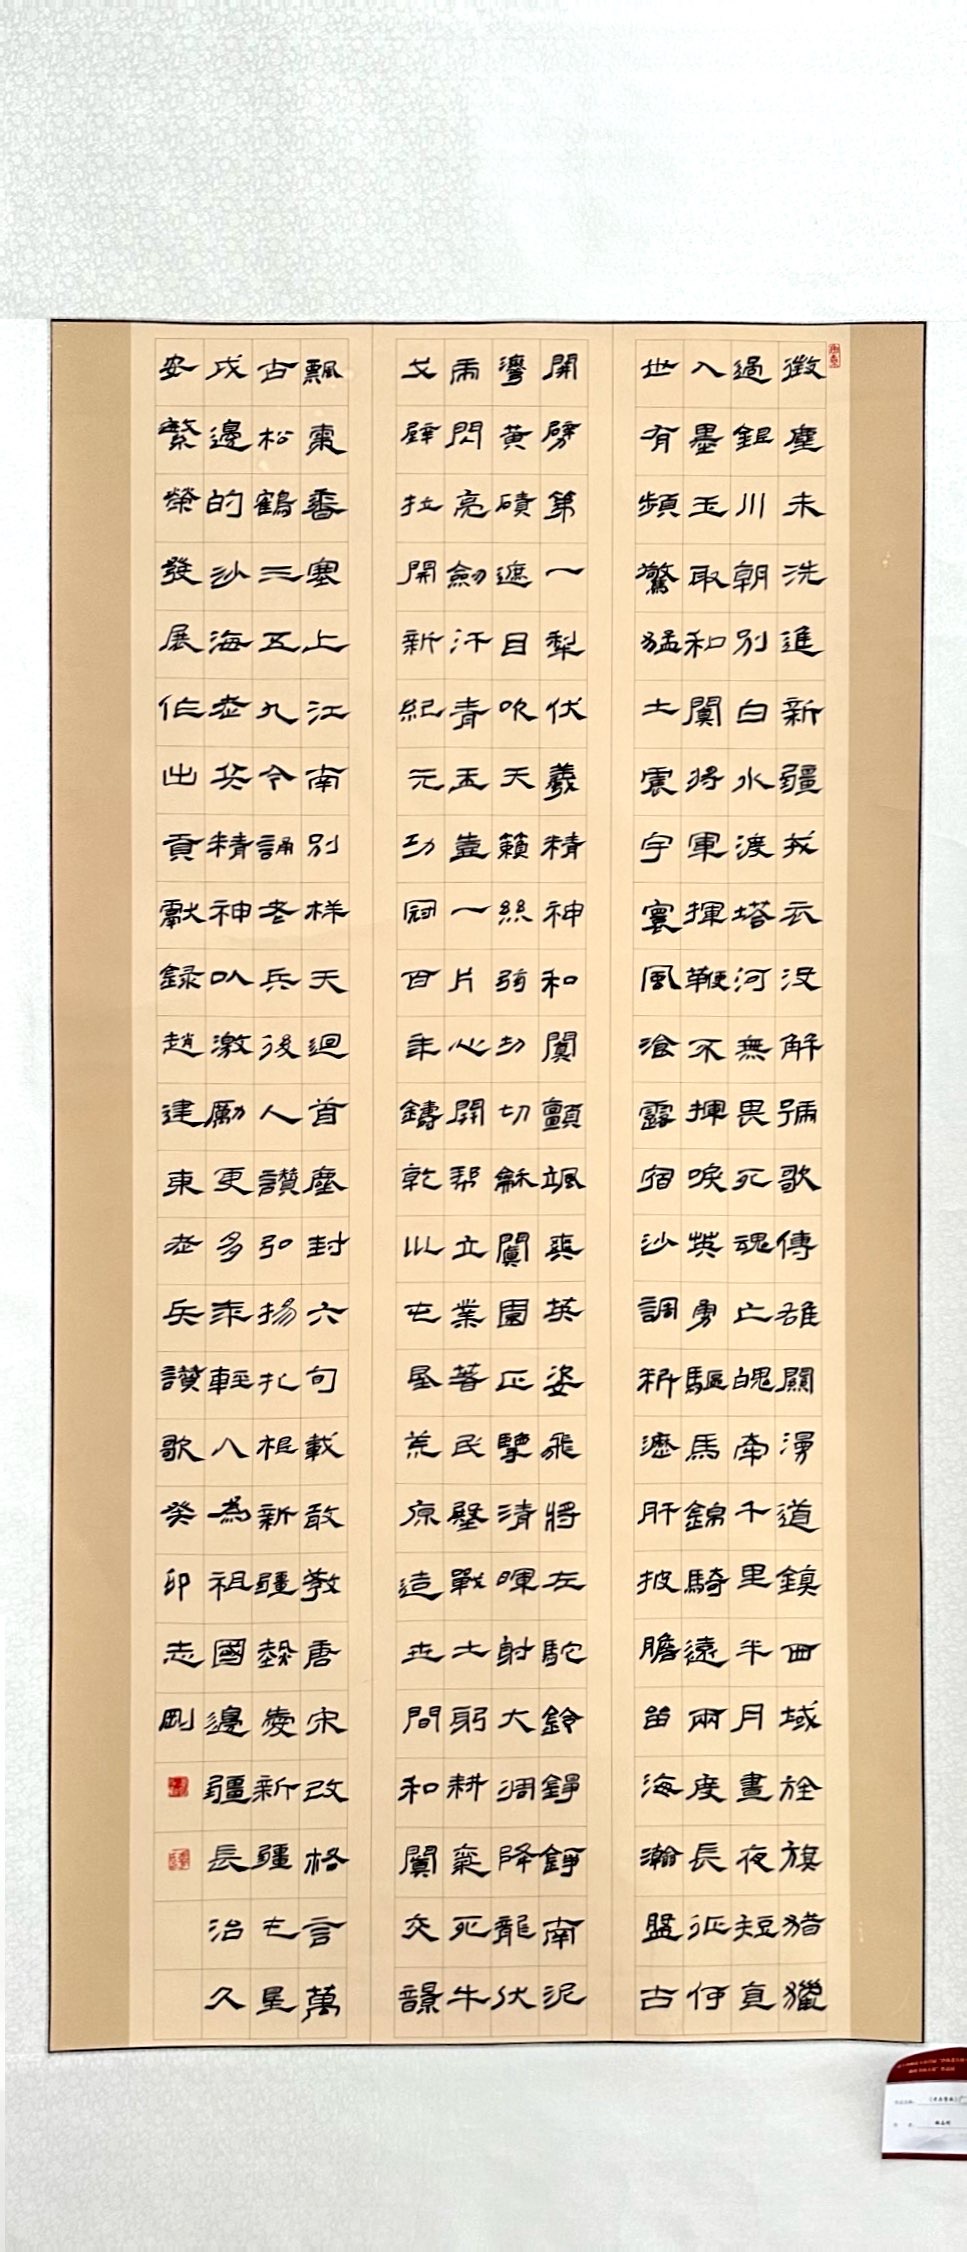 徵塵未洗進新疆戎衣沒解號歌傳雄關漫道鎮西域旌旗猎獵
過鉏川朝別白水渡塔河無畏死魂亡魄牽千里半月晝夜短直
入墨玉取和闐將軍揮鞭不揮淚英勇驅馬錦騎遠兩度長征伊
世有頻驚猛士震宇寰風飡露宿沙調瀝肝披膽留海瀚盤古
開劈第一犁伏羲精神和闐顫颯爽英姿飛將在駝鈴錚錚南泥
灣黃磧遮目吹天籟絲弦切切穌闐園匹擘清暉射大凋降龍伏
閃亮劍汗青一片心開立業民墾戰士躬耕棄死牛
戈壁拉開新紀元功冠百年鑄乾屯墾荒原造世間和闐交韻
飄棗香塞上江南別樣天迴首塵封六句載敢教唐宋改格言萬
古松鶴三五九今誦老兵後人讚弘揚扎根新疆熱愛新疆屯墾
戍邊的沙海老兵精神以激勵更多年輕人為祖國邊疆長治久
安繁榮發展作出貢獻錄趙建東老兵讚歌癸卯志剛